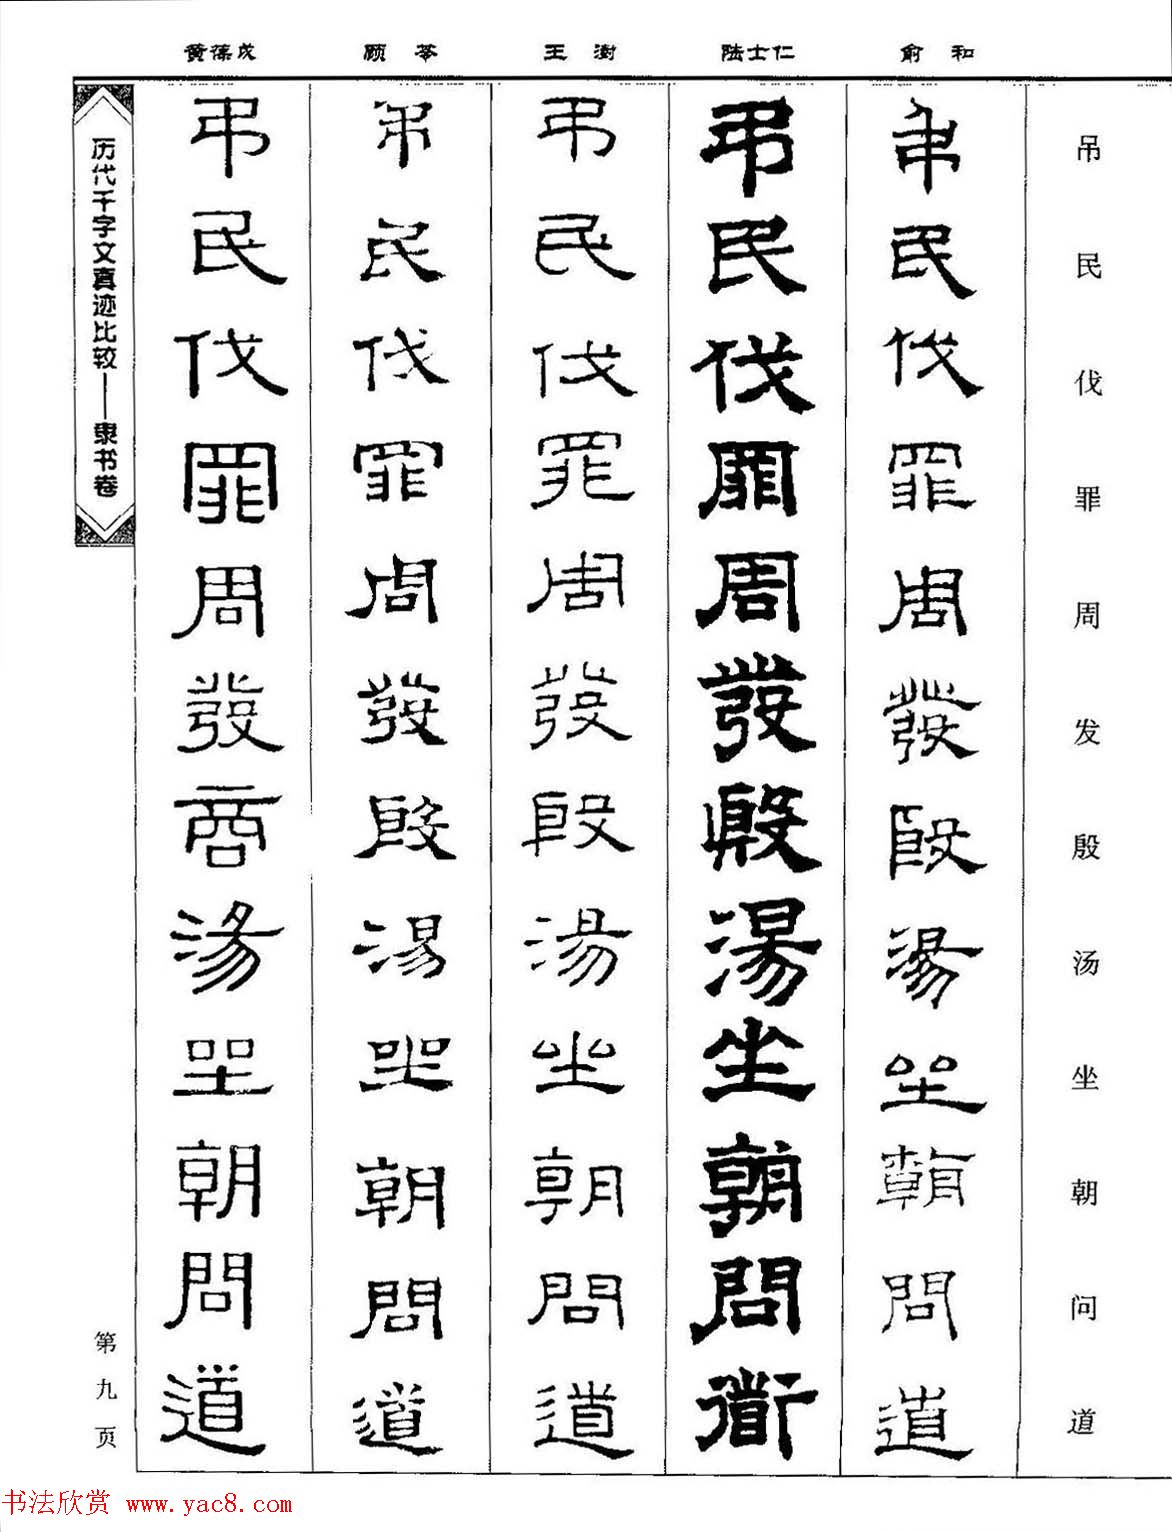 黄葆戉 顾苓 王澍 陆士仁 俞和
吊民伐罪周发殷汤坐朝问道
弔民伐罪周發殷湯坐朝問道
弔民伐罪周發殷湯坐朝問衟
弔民伐罪周發殷湯坐朝問道
弔民伐罪周發殷湯坐朝問道
弔民伐罪周發商湯坐朝問道
历代千字文真迹比较——隶书卷
第九页
书法欣赏 www.yac8.com